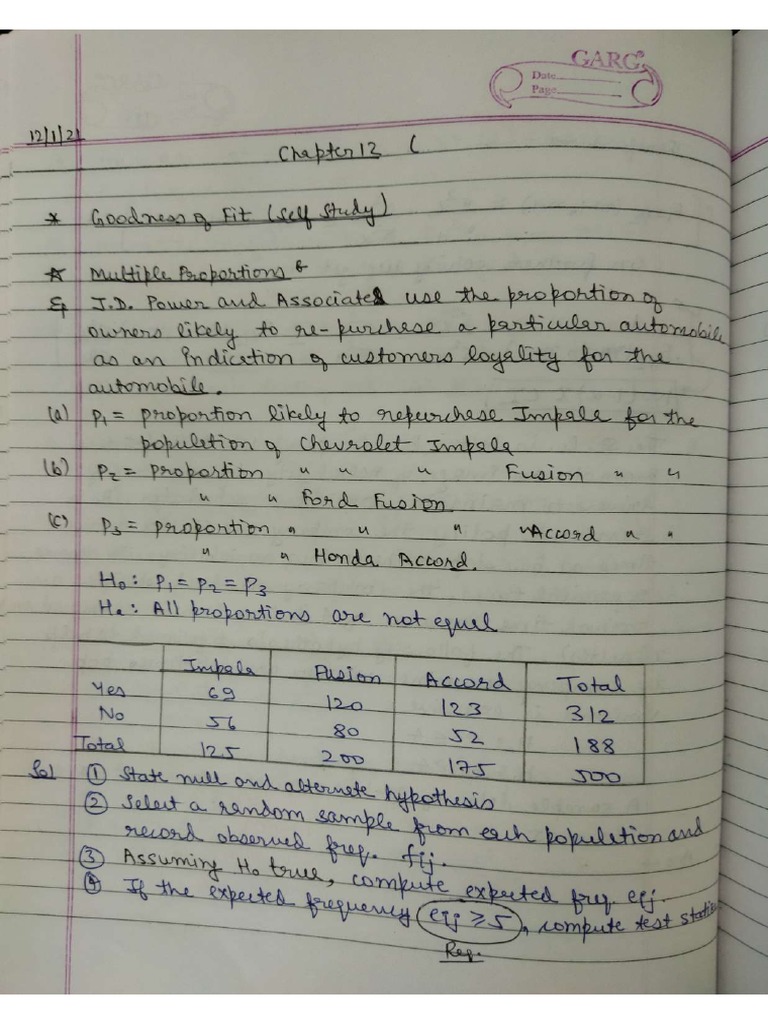 GARG
Date
Page
12/1/21
Chapter 12 (
* Goodness of Fit (Self Study)
* Multiple Proportions
Eg J.D. Power and Associates use the proportion of
owners likely to re-purchese a particular automobile
as an indication of customers loyality for the
automobile.
(a) P₁ = proportion likely to repurchese Impala for the
population of Chevrolet Impala
(b) P₂ = proportion " " " Fusion " "
" " Ford Fusion
(c) P₃ = proportion " " " " Accord " "
" " Honda Accord.
H₀: P₁ = P₂ = P₃
Ha: All proportions are not equal
Impala Fusion Accord Total
Yes 69 120 123 312
No 56 80 52 188
Total 125 200 175 500
Sol ① State null and alternate hypothesis
② Select a random sample from each population and
record observed freq. fij.
③ Assuming H₀ true, compute expected freq. eij.
④ If the expected frequency eij ≥ 5, compute test
Req.